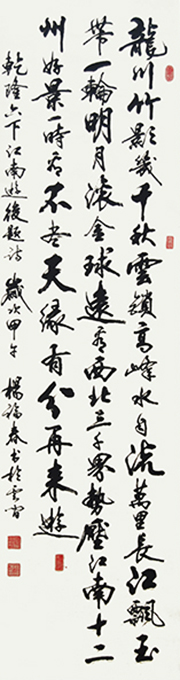 龍川竹影幾千秋雲鎖高峰水自流萬里長江飄玉
帶一輪明月滾金球遠看西北三千界勢壓江南十二
州好景一時看不尽天緣有分再來遊
乾隆六下江南遊後題詩 歲次甲午 楊福春書於雲